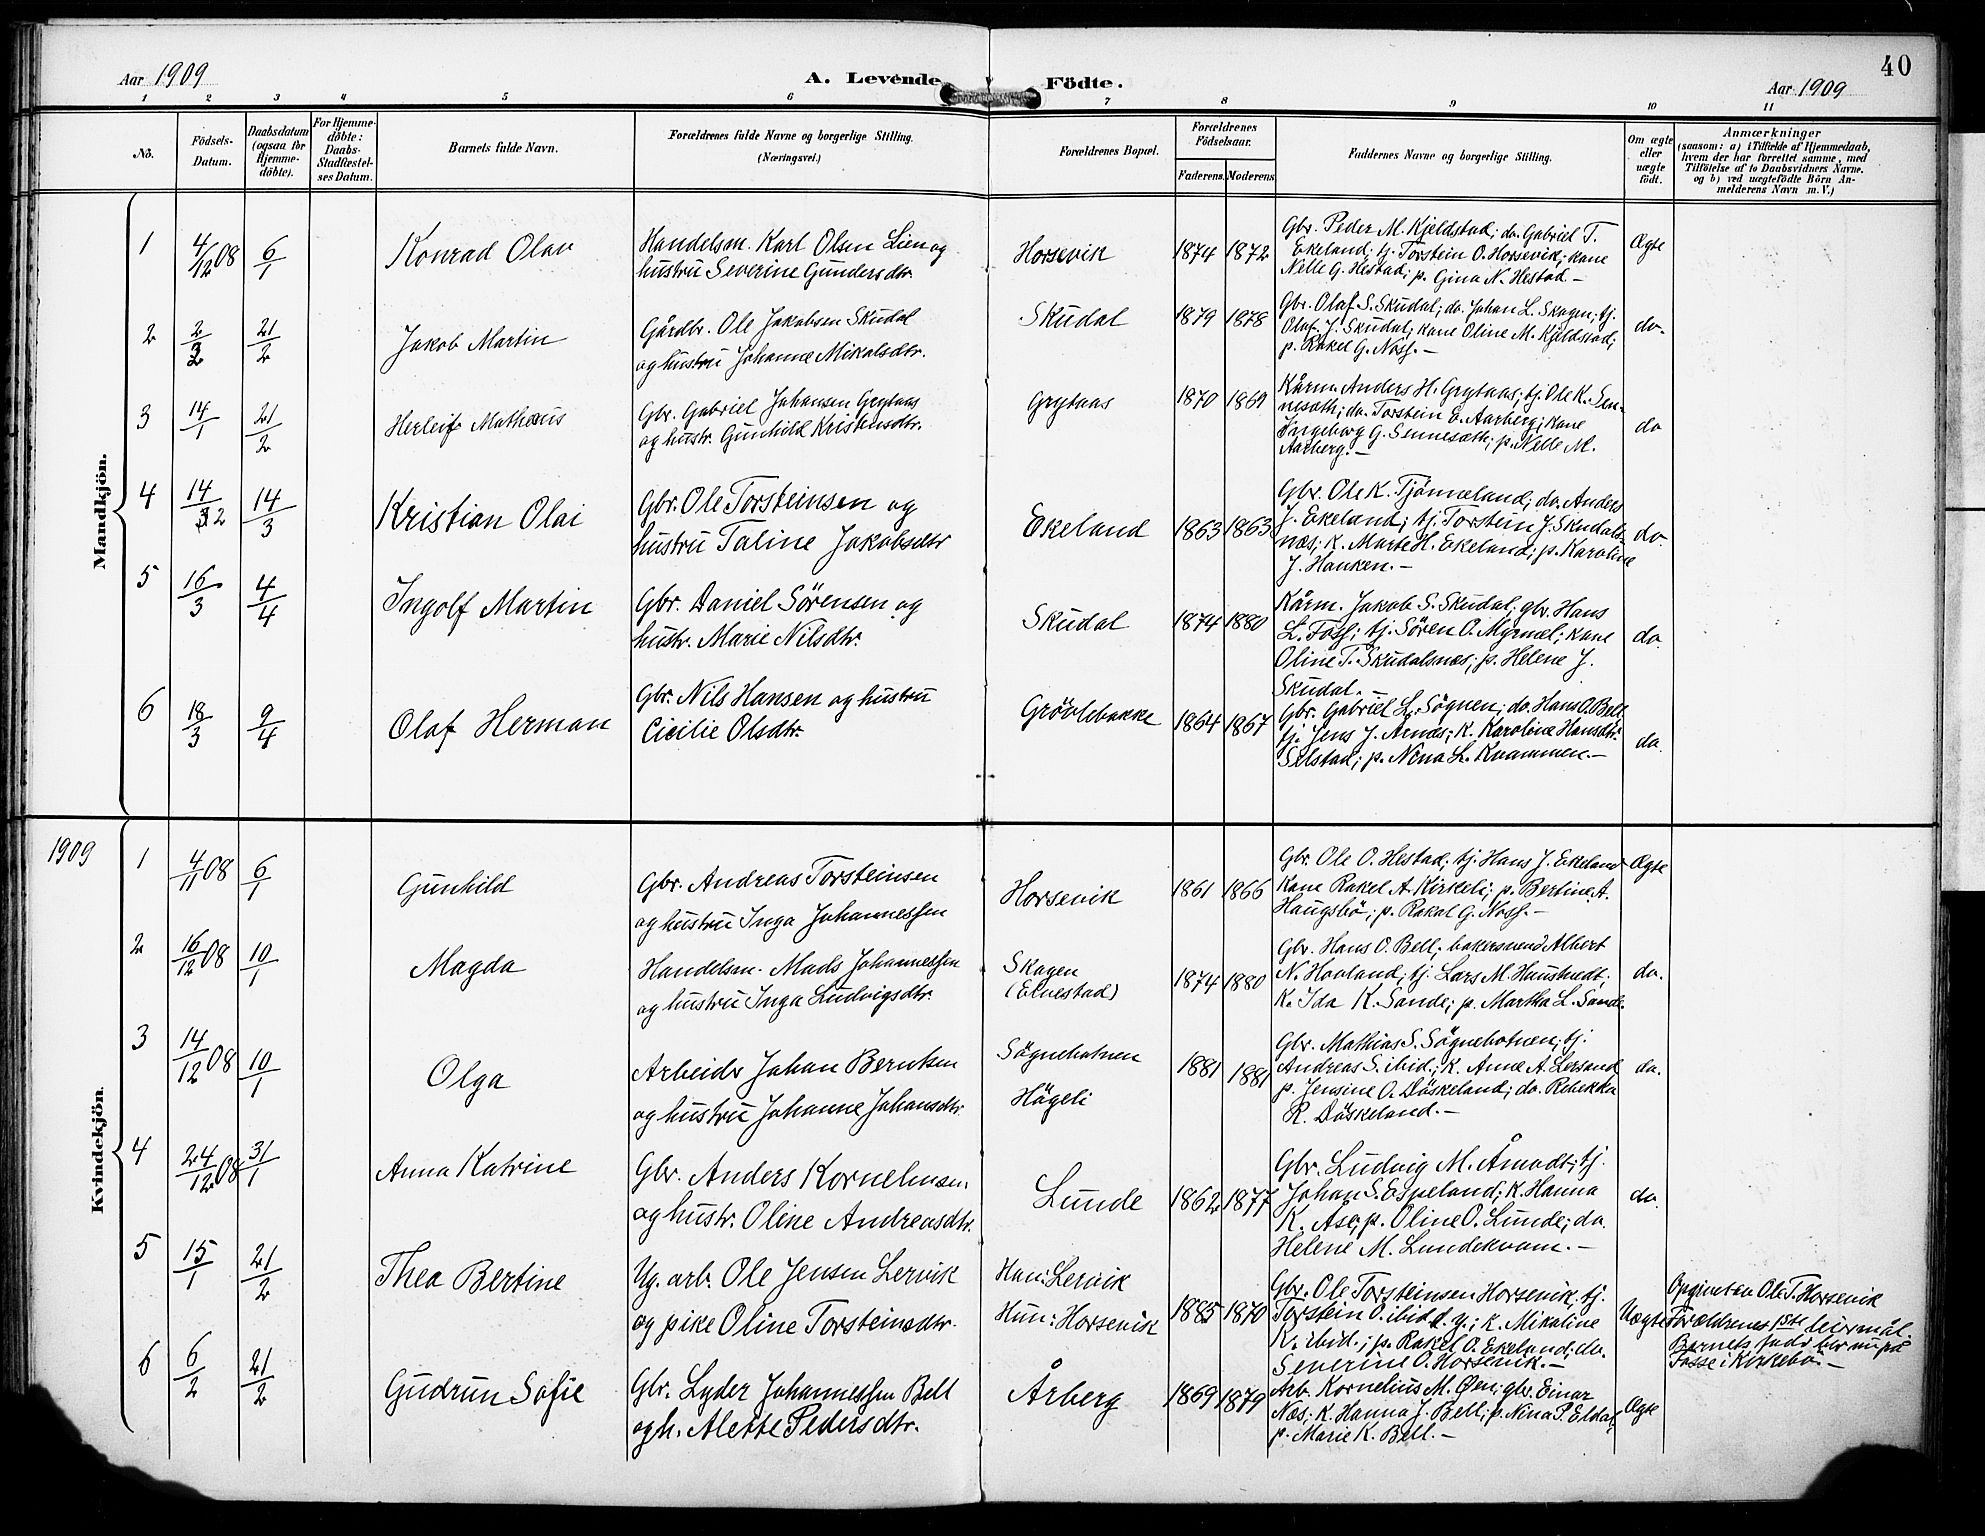 40
Aar 1909
A. Levende Födte.
Aar 1909
1 2 3 4 5 6 7 8 9 10 11
No.
Födsels-
Datum.
Daabsdatum
(ogsaa for
Hjemme-
döbte).
For Hjemme-
döbte:
Daabs-
Stadfæstel-
ses Datum.
Barnets fulde Navn.
Forældrenes fulde Navne og borgerlige Stilling.
(Næringsvei.)
Forældrenes Bopæl.
Forældrenes
Födselsaar.
Faderens. Moderens.
Faddernes Navne og borgerlige Stilling.
Om ægte
eller
uægte
födt.
Anmærkninger
(saasom: a) i Tilfælde af Hjemmedaab,
hvem der har forrettet samme, med
Tilföielse af to Daabsvidners Navne.
og b) ved uægtefödte Börn An-
melderens Navn m. V.)
Mandkjön.
1 4/12 08 6/1 Konrad Olav
Handelsm. Karl Olsen Lien og
hustru Severine Gundersdtr.
Horsevik 1874 1872
Gbr. Peder M. Kjeldstad; do. Gabriel T.
Ekeland; tj. Torstein O. Horsevik; kone
Nelle G. Hestad; p. Gina N. Hestad –
Ægte
2 2/2 21/2 Jakob Martin
Gårdbr. Ole Jakobsen Skudal
og hustru Johanne Mikalsdtr.
Skudal 1879 1878
Gbr. Olaf S. Skudal; do. Johan L. Skagen; tj.
Olaf J. Skudal; kone Oline M. Kjeldstad;
p. Rakel G. Noss. –
do.
3 14/1 21/2 Herleif Matheus
Gbr. Gabriel Johansen Grytaas
og hustr. Gunhild Kristensdtr.
Grytaas 1870 1869
Kårm. Anders H. Grytaas; tj. Ole K. Sen-
nesæth; do. Torstein E. Aarberg; kone
Ingeborg G. Sennesæth; p. Nelle M.
Aarberg. –
do
4 14/2 14/3 Kristian Olai
Gbr. Ole Torsteinsen og
hustru Taline Jakobsdtr
Ekeland 1863 1863
Gbr. Ole K. Tjönneland; do. Anders
J. Ekeland; tj. Torstein J. Skudals-
næs; k. Marte H. Ekeland; p. Karoline
J. Hauken. –
do.
5 16/3 4/4 Ingolf Martin
Gbr. Daniel Sörensen og
hustr. Marie Nilsdtr.
Skudal 1874 1880
Kårm. Jakob S. Skudal; gbr. Hans
L. Foss; tj. Sören O. Myrmel; kone
Oline T. Skudalsnæs; p. Helene J.
Skudal. –
do.
6 18/3 9/4 Olaf Herman
Gbr. Nils Hansen og hustru
Cicilie Olsdtr.
Grövlebakke 1864 1867
Gbr. Gabriel L. Sögnen; do. Hans O. Bell
tj. Jens J. Arnes; k. Karoline Hansdtr.
Selstad; p. Nina L. Kvammen. –
do.
Kvindekjön
1909
1 4/11 08 6/1 Gunhild
Gbr. Andreas Torsteinsen
og hustru Inga Johannessen
Horsevik 1861 1866
Gbr. Ole O. Hestad; tj. Hans J. Ekeland
Kone Rakel A. Kirkeli; p. Bertine A.
Haugsbö; p. Rakel G. Noss. –
Ægte
2 16/12 08 10/1 Magda
Handelsm. Mads Johannessen
og hustru Inga Ludvigsdtr.
Skagen
(Elvestad)
1874 1880
Gbr. Hans O. Bell; bakersvend Albert
N. Hovland; tj. Lars M. Haustvedt;
K. Ida K. Sande; p. Martha L. Sande.
do.
3 14/12 08 10/1 Olga
Arbeider Johan Berntsen
og hustru Johanne Johansdtr.
Sögnebotnen
Högeli
1881 1881
Gbr. Mathias S. Sögnebotnen; tj.
Andreas S. ibid.; k. Anne A. Lersand
p. Jensine O. Döskeland; do. Rebekka
R. Döskeland. –
do.
4 24/12 08 31/1 Anna Katrine
Gbr. Anders Korneliusen
og hustr. Oline Andreasdtr.
Lunde 1862 1877
Gbr. Ludvig M. Åmodt; tj.
Johan S. Espeland; K. Hanna
K. Ase; p. Oline O. Lunde; do.
Helene M. Lundekvam. –
do.
5 15/1 21/2 Thea Bertine
Ug. arb. Ole Jensen Lervik
og pike Oline Torsteinsdtr.
Han: Lervik
Hun: Horsevik
1885 1870
Gbr. Ole Torsteinsen Horsevik; tj.
Torstein O. ibid. d. y.; k. Mikaline
K. ibid.; p. Rakel O. Ekeland; do.
Severine O. Horsevik. –
Uægte
Opgivet av Ole T. Horsevik
Forældrenes 1ste leiermål.
Barnets fader bor nu på
Fosse i Kirkebö –
6 6/2 21/2 Gudrun Sofie
Gbr. Lyder Johannessen Bell
og h. Alette Pedersdtr.
Årberg 1869 1879
Arb. Kornelius M. Øen; gbr. Einar
Næs; k. Hanna J. Bell; p. Nina P. Eldal;
p. Marie K. Bell. –
Ægte